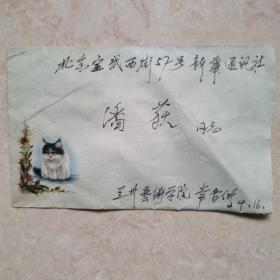 北京宣武西街57号新华通讯社
潘荻 同志
兰州艺术学院 常书鸿 4.16.